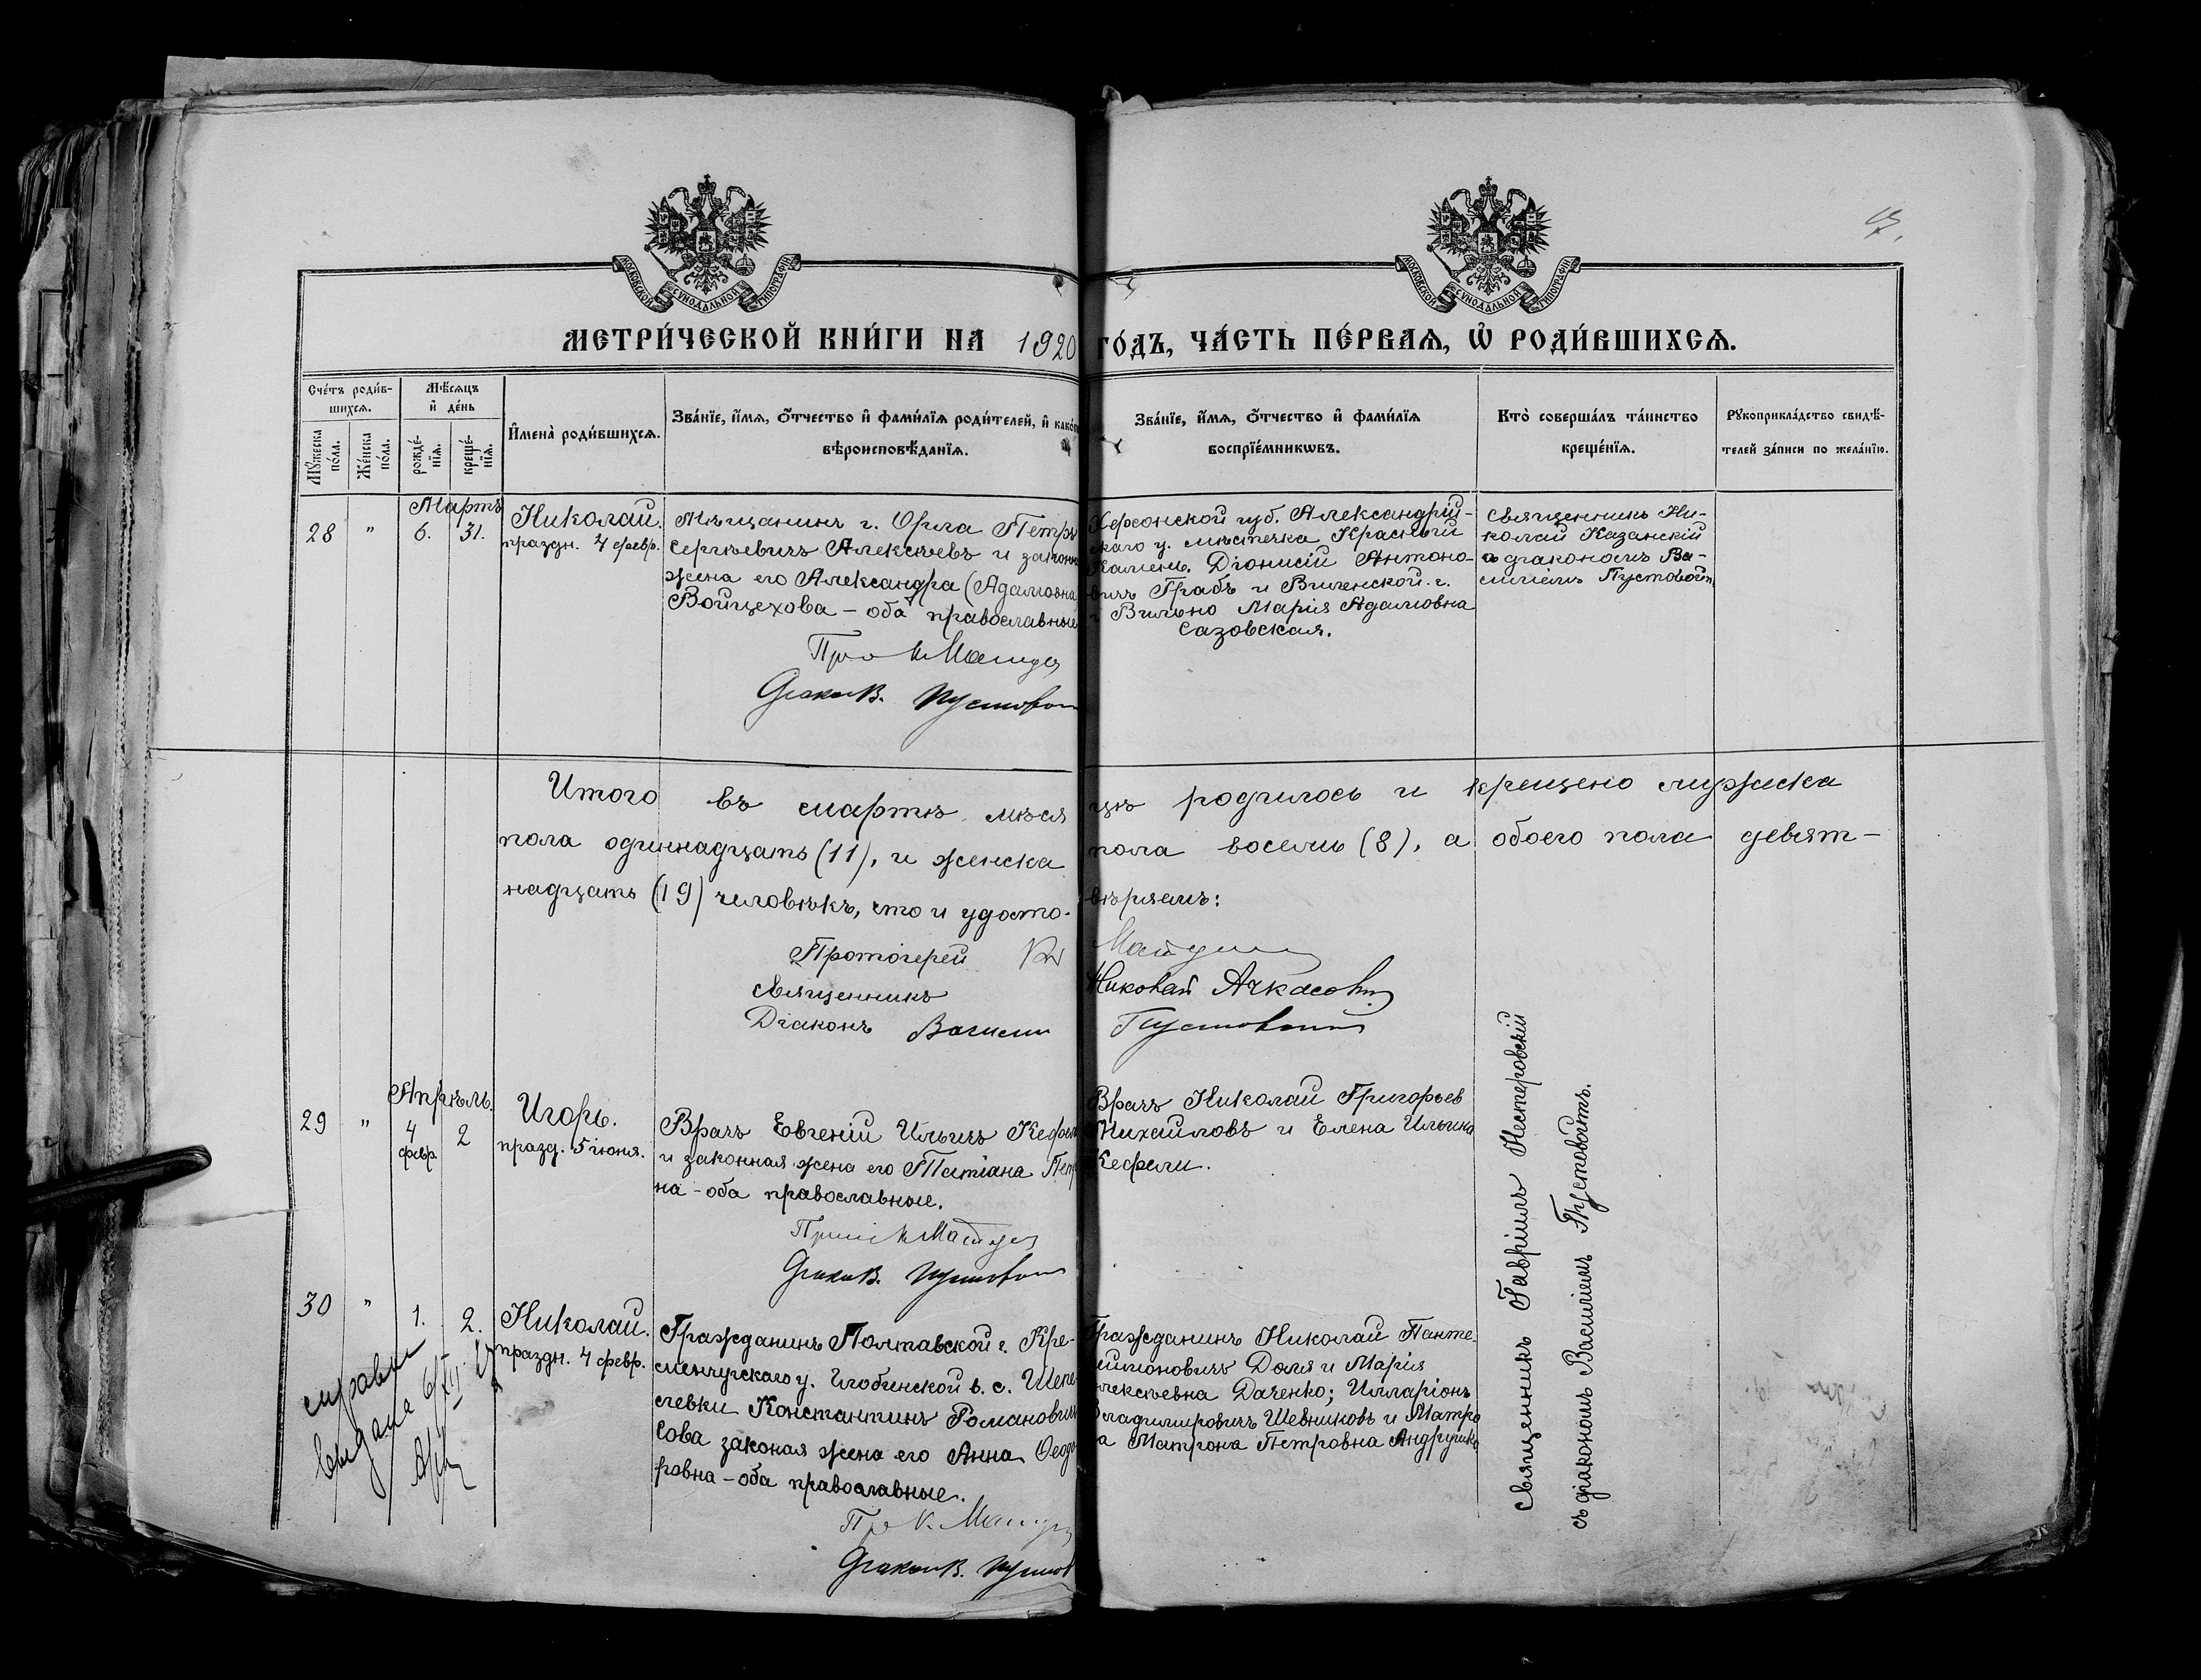 МОСКОВСКОЙ СУНОДАЛЬНОЙ ТИПОГРАФІИ
МОСКОВСКОЙ СУНОДАЛЬНОЙ ТИПОГРАФІИ
МЕТРИ́ЧЕСКОЙ КНИ́ГИ НА 1920 ГО́ДЪ, ЧА́СТЬ ПЕ́РВАѦ, Ѡ҆ РОДИ́ВШИХСѦ.
Сче́тъ роди́в-
шихсѧ.
Мꙋ́жеска по́ла.
Же́нска по́ла.
Мѣ́сѧцъ
и҆ де́нь
рожде́-
нїѧ.
креще́-
нїѧ.
И҆мена̀ роди́вшихсѧ.
Зва́нїе, и҆́мѧ, ѻ҆́тчество и҆ фами́лїѧ роди́телей, и҆ како́г
вѣроисповѣ́данїѧ.
Зва́нїе, и҆́мѧ, ѻ҆́тчество и҆ фами́лїѧ
воспрїе́мникѡвъ.
Кто̀ соверша́лъ та́инство
креще́нїѧ.
Рꙋкоприкла́дство свидѣ́-
телей за́писи по жела́нїю.
Мартъ
28 " 6. 31.
Николай.
праздн. 4 февр.
Мѣщанинъ г. Орла Петръ
Сергѣевичъ Алексѣевъ и законн
жена его Александра (Адамовна
Войцехова – оба православные
Діакон В. Пустово
Херсонской губ. Александрій-
скаго у. мѣстечка Красный
Камень. Діонисій Антоно-
вичъ Грабъ и Виленской. г.
г Вильно Марія Адамовна
Сазовская.
Священникъ Ни-
колай Казанскій
съ діакономъ Ва-
силіемъ Пустовойт
Итого въ мартѣ мѣся цѣ родилось и крещено мужска
пола одиннадцать (11), и женска пола восемь (8), а обоего пола девят-
надцать (19) человѣкъ, что и удосто- вѣряемъ:
Протоіерей
Священникъ Николай Ачкасовъ
Діаконъ Васили Пустовойт
Апрѣль.
29 " 4 февр. 2
Игорь.
празд. 5 іюня.
Врачъ Евгеній Ильичъ Кефел
и законная жена его Татіана Петр
на – оба православные.
Діакон В. Пустово
Врачъ Николай Григорьев
Михайловъ и Елена Ильина
Кефели.
30 " 1. 2.
Николай.
праздн. 4 февр.
Гражданинъ Полтавской г. Кре-
менчугскаго у. Глобинской в. с. Шепе
левки Константинъ Романович
Сова законая жена его Анна Ѳеодо
ровна – оба православные.
Діакон В. Пустов
Гражданинъ Николай Панте-
лимоновичъ Доля и Марія
лексѣевна Даченко; Илларіонъ
Владимировичъ Шевниковъ и Матро
а Матрона Петровна Андрушко
Священникъ Гавріилъ Нестеровскій
съ діакономъ Василіемъ Пустовойтъ.
справка
выдана